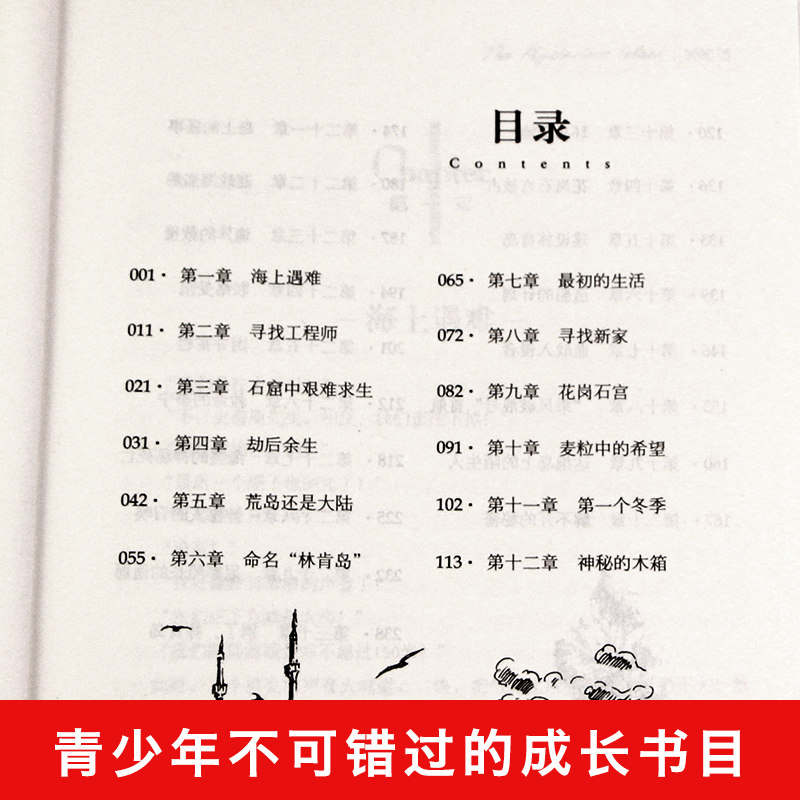 The Mysterious Island
目录
Contents
001· 第一章 海上遇难
011· 第二章 寻找工程师
021· 第三章 石窟中艰难求生
031· 第四章 劫后余生
042· 第五章 荒岛还是大陆
055· 第六章 命名“林肯岛”
065· 第七章 最初的生活
072· 第八章 寻找新家
082· 第九章 花岗石宫
091· 第十章 麦粒中的希望
102· 第十一章 第一个冬季
113· 第十二章 神秘的木箱
青少年不可错过的成长书目